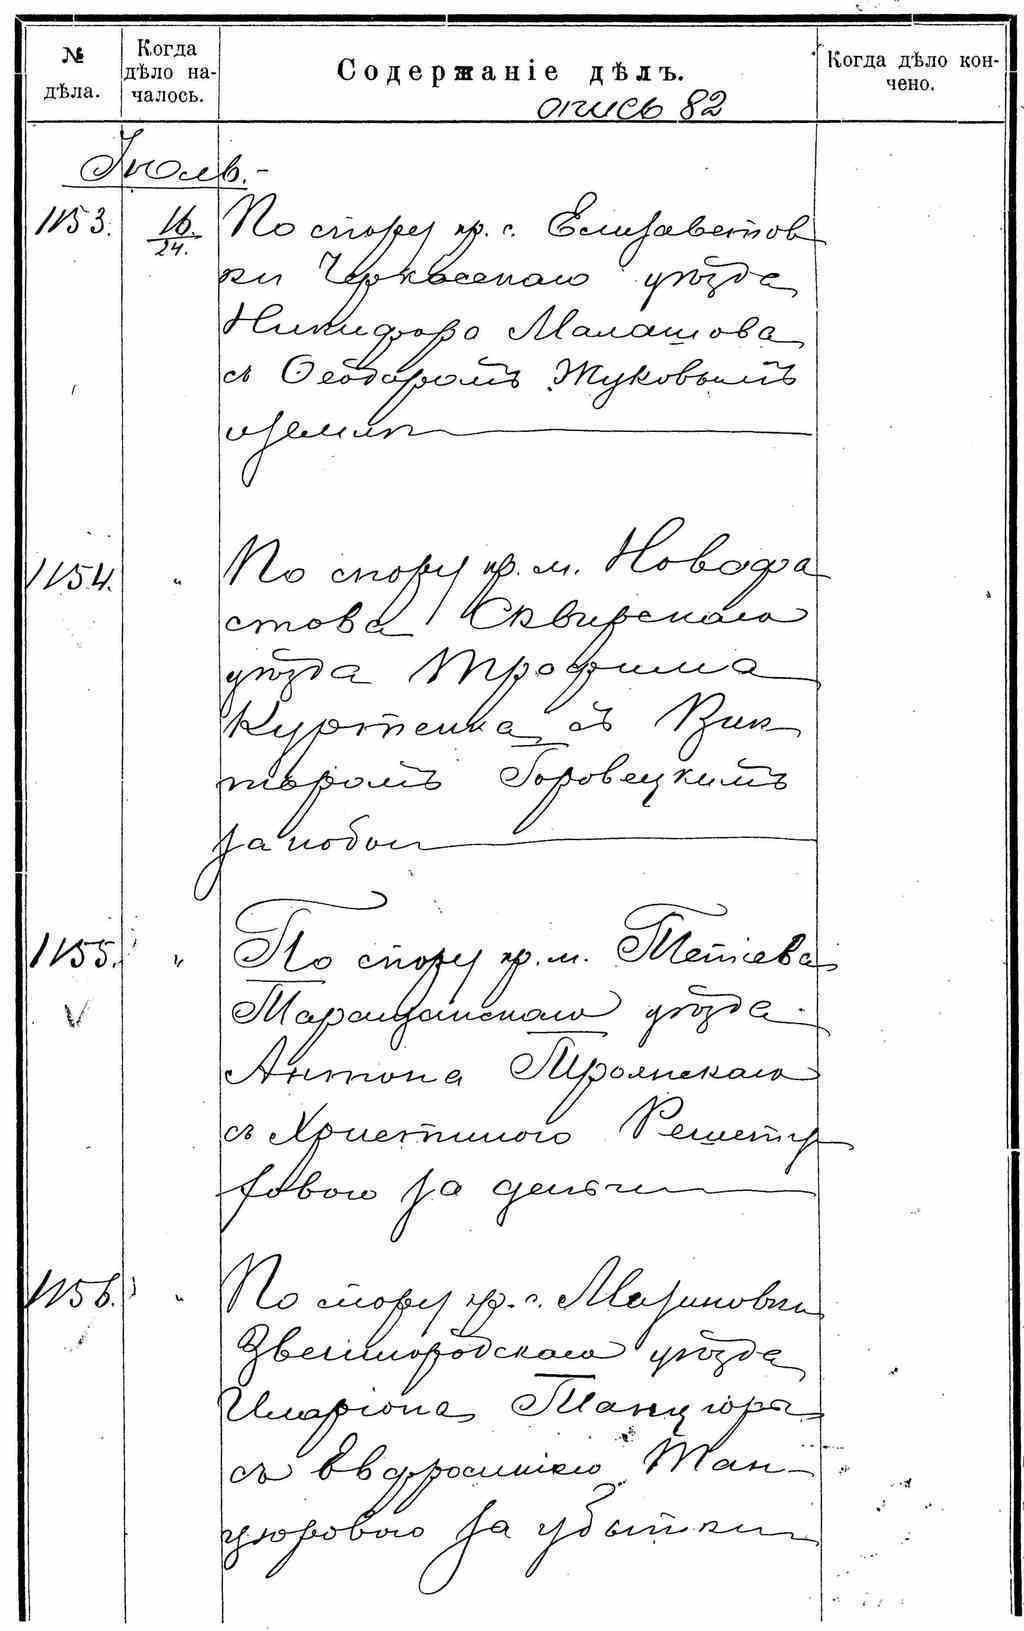 № дѣла.
Когда дѣло на-чалось.
Содержаніе дѣлъ.
Когда дѣло кон-чено.
опись 82
Іюль.-
1153. 16./24. По спору кр. с. Елизаветов
ки Черкасскаго уѣзда
Никифора Малашова
съ Ѳеодоромъ Жуковымъ
о землѣ
1154. " По спору кр. м. Новофа
стова Сквирскаго
уѣзда Трофима
Куртенка съ Вик
торомъ Боровецкимъ
за побои
1155. " По спору кр. м. Тетіева
Таращанскаго уѣзда
Антона Троянскаго
съ Христиною Решету
ховою за деньги
1156. " По спору кр. с. Мазиновки
Звенигородскаго уѣзда
Иларіона Танцюры
съ Евфросиніею Тан-
цюровою за убытки